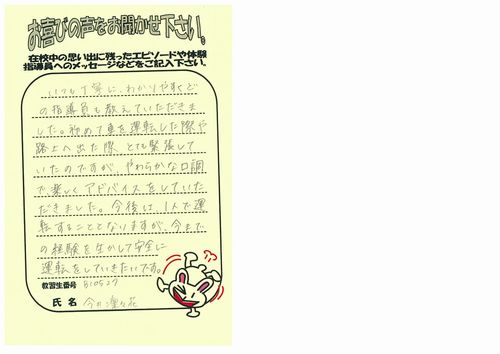 お喜びの声をお聞かせ下さい。
在校中の思い出に残ったエピソードや体験
指導員へのメッセージなどをご記入下さい。
いつも丁寧に、わかりやすくど
の指導員も教えていただきま
した。初めて車を運転した際や
路上へ出た際、とても緊張して
いたのですが、やわらかな口調
で楽しくアドバイスをしていた
だきました。今後は、1人で運
転することとなりますが、今まで
の経験を生かして安全に
運転をしていきたいです。
教習生番号 810527
氏名 今井